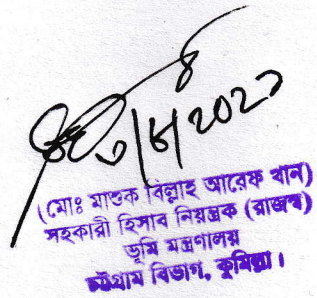 (মোঃ মাশুক বিল্লাহ আরেফ খান)
সহকারী হিসাব নিয়ন্ত্রক (রাজস্ব)
ভূমি মন্ত্রণালয়
চট্টগ্রাম বিভাগ, কুমিল্লা।